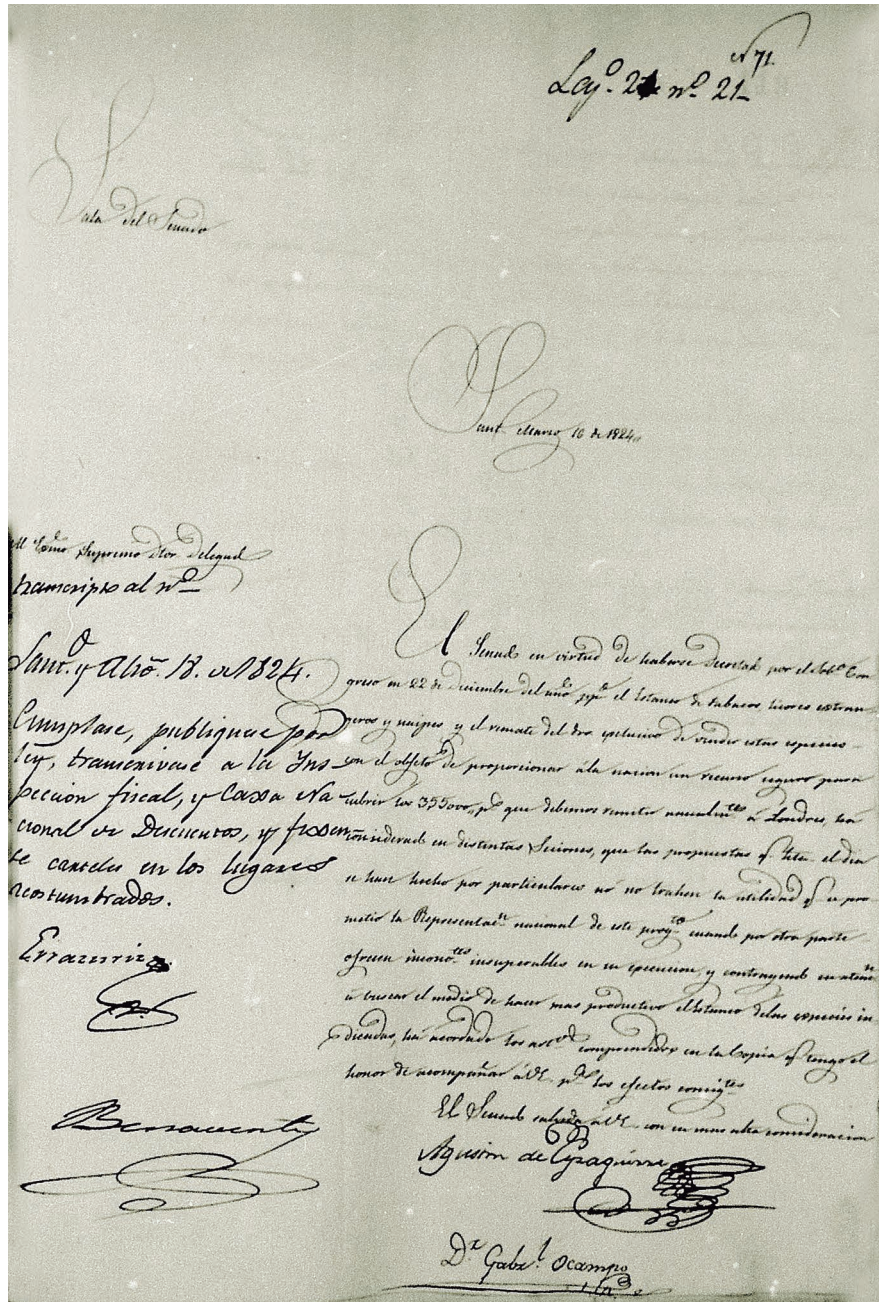 nº 71.
Legº. 2 nº 21
Sala del Senado
Sant. Marzo 16 de 1824
Exmo Supremo Dtor. Delegad
transcripto al nº
Sant.º y Abro. 18. de 1824.
Cumplase, publiquese por
ley, transcrivase a la Ins
peccion fiscal, y Caxa Na
cional de Descuentos, y fixen
se carteles en los lugares
acostumbrados.
Errazuriz
Benavente
El Senado en virtud de haberse decretado por el Sobº Con
greso en 22 de Diciembre del año ppº el Estanco de tabacos, licores extran
geros y naipes y el remate del dro exclusivo de vender estas especies
con el objeto de proporcionar á la nacion un recurso seguro para
cubrir los 355000 ps que debemos remitir anualmtes á Londres, ha
considerado en distintas Seciones, que las propuestas q hta el dia
se han hecho por particulares no trahen la utilidad q se pro
metio la Representan nacional de este proyto cuando por otra parte
ofrecen inconvtes insuperables en su ejecucion, y contrayendo su atencn
á buscar el medio de hacer mas productivo el estanco de las especies in
dicadas, há acordado los artos comprendidos en la Copia q tengo el
honor de acompañar á VE pª los efectos consigtes
El Senado saluda á VE con su mas alta consideracion
Agustin de Eyzaguirre
Dr Gabrl Ocampo